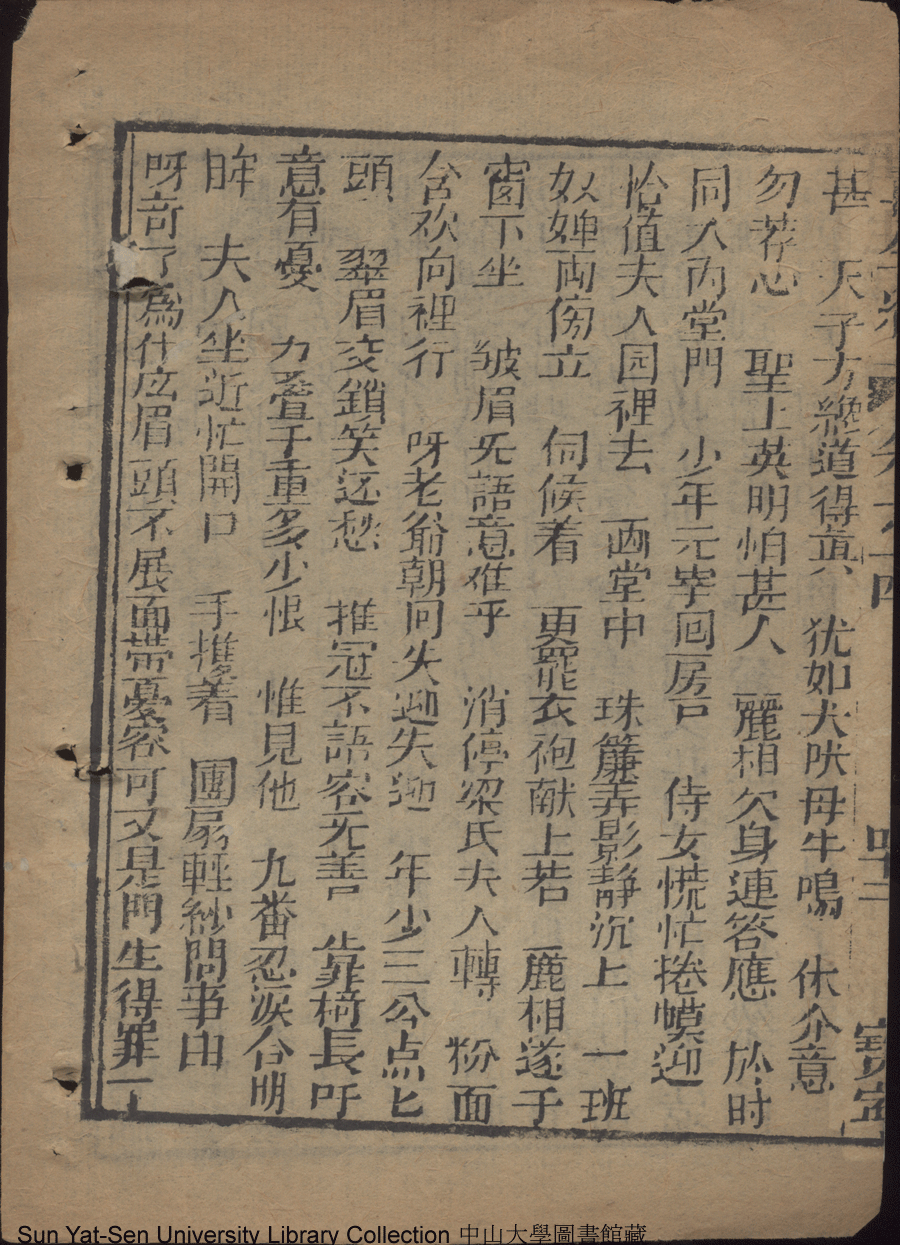 甚　天子方纔道得真　犹如犬吠母牛鳴　休介意
勿荐心　聖上英明怕甚人　麗相欠身連答應　於时
同入內堂門　少年元宰回房□　侍女慌忙捲幙迎
恰值夫人园裡去　画堂中　珠簾弄影静沉上　一班
奴婢两傍立　伺候着　更罷衣袍献上茗　麗相遂于
窗下坐　皱眉无語意难乎　消停梁氏夫人轉　粉面
含欢向裡行　呀老爺朝回失迎失迎　年少三公点匕
頭　翠眉交鎖笑还愁　推冠不語容无善　靠椅長吁
意有憂　力叠千重多少恨　惟見他　九番忍淚合明
眸　夫人坐近忙開口　手携着　團扇輕紗問事由
呀奇了為什庅眉頭不展面帶憂容可又是門生得罪
四十二
Sun Yat-Sen University Library Collection 中山大學圖書館藏